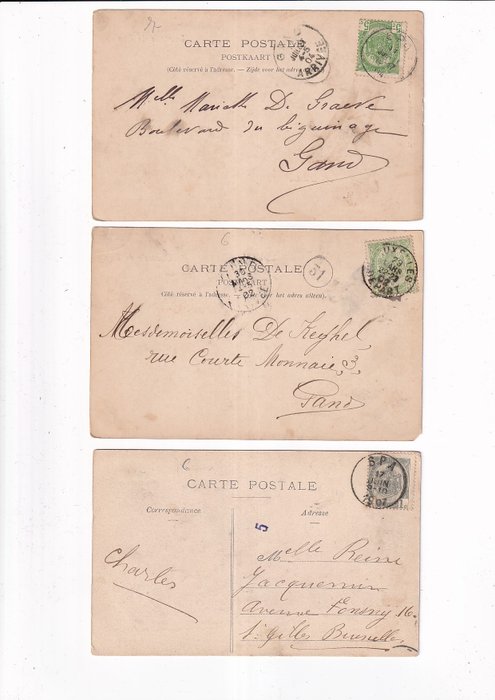 CARTE POSTALE
POSTKAART
(Côté réservé à l'adresse. – Zijde voor het adres
ARRIVÉE
4-5
04
Melle Mariette De Graeve
Boulevard du béguinage
Gand
6
CARTE POSTALE
POSTKAART
(Côté réservé à l'adresse. het adres alleen.)
51
Mesdemoiselles De Keyhel
rue Courte Monnaie 3
Gand
6
SPA
17
JUIN
9-10
1907
CARTE POSTALE
Correspondance
Adresse
5
Charles
Melle Reine
Jacquemin
Avenue Fonsny 16
St Gilles Bruxelles